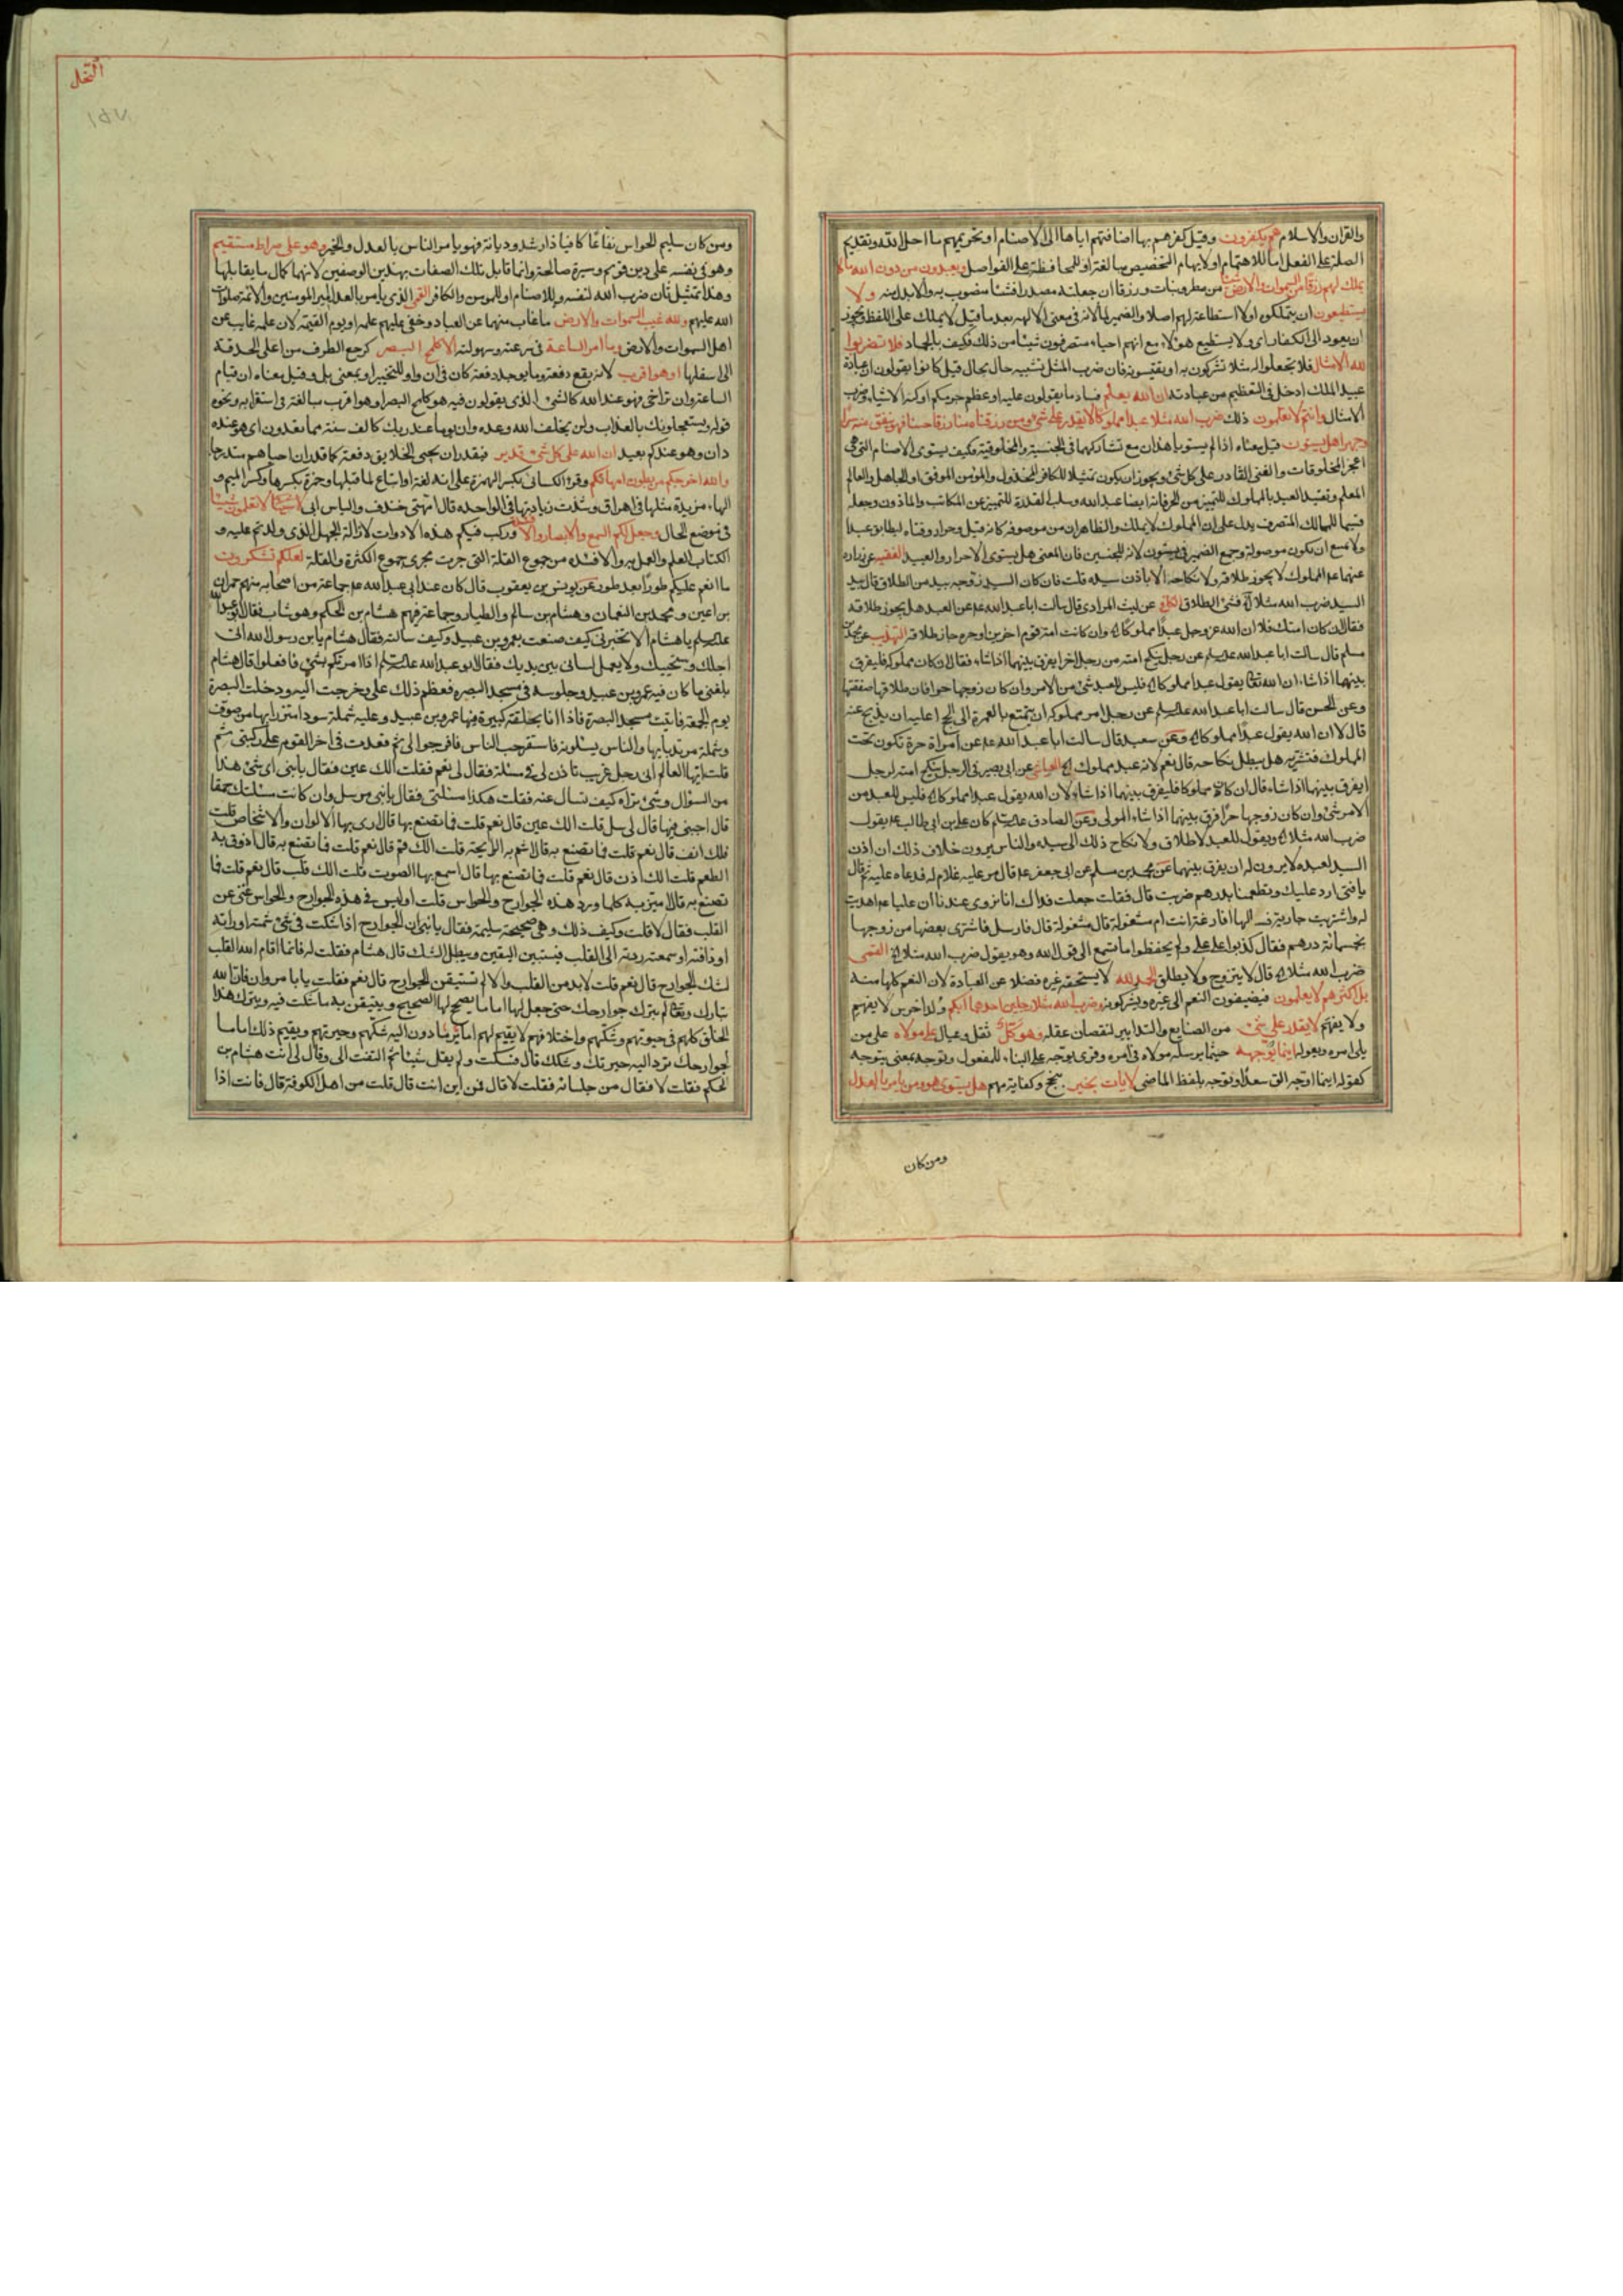 والقران والاسلام هم يكفرون وقيل كفرهم بها اضافتهم اياها الى الاصنام او تحريمهم ما احل الله وتقديم
الصلة على الفعل اما للاهتمام او لايهام التخصيص مبالغة او للمحافظة على الفواصل ويعبدون من دون الله ما لا
يملك لهم رزقا من السموات والارض شيئا من مطر ونبات ورزقا ان جعلته مصدرا فشيئا منصوب به والا بدل منه ولا
يستطيعون ان يتملكوه او لا استطاعة لهم اصلا والضمير لما لانه في معنى الالهة بعد ما قيل لا يملك على اللفظ ويجوز
ان يعود الى الكفار اى ولا يستطيع هؤلاء مع انهم احياء متصرفون شيئا من ذلك فكيف بالجماد فلا تضربوا
لله الامثال فلا تجعلوا له مثلا تشركون به او تقيسونه فان ضرب المثل تشبيه حال بحال قيل كانوا يقولون ان عبادة
عبيد الملك ادخل في التعظيم من عبادته ان الله يعلم فساد ما يقولون عليه او عظم جرمكم او كنه الاشياء وضرب
الامثال وانتم لا تعلمون ذلك ضرب الله مثلا عبدا مملوكا لا يقدر على شئ ومن رزقناه منا رزقا حسنا فهو ينفق منه سرا
وجهرا هل يستون قيل معناه اذا لم يستويا هذان مع تشاركهما في الجنسية والمخلوقية فكيف يستوى الاصنام التي هي
اعجز المخلوقات والغنى القادر على كل شئ ويجوز ان يكون تمثيلا للكافر المخذول والمؤمن الموفق او الجاهل والعالم
المعلم وتقييد العبد بالمملوك للتمييز من الحر فانه ايضا عبد الله وسلب القدرة للتمييز عن المكاتب والماذون وجعله
قسيما للمالك المتصرف يدل على ان المملوك لا يملك والظاهر ان من موصوفة كانه قيل وحرا رزقناه ليطابق عبدا
ولا يمنع ان يكون موصولة وجمع الضمير في يستون لانه للجنسين فان المعنى هل يستوى الاحرار والعبيد الفقيه عن زرارة
عنهما عم المملوك لا يجوز طلاقه ولا نكاحه الا باذن سيده قلت فان كان السيد زوجه بيد من الطلاق قال بيد
السيد ضرب الله مثلا الاية فشئ الطلاق الكافي عن ليث المرادى قال سالت ابا عبد الله عم عن العبد هل يجوز طلاقه
فقال ان كان امتك فلا ان الله عز وجل عبدا مملوكا الاية وان كانت امة قوم اخرين او حرة جاز طلاقه التهذيب عن محمد بن
مسلم قال سالت ابا عبد الله عليه السلم عن رجل ينكح امته من رجل اخر ايفرق بينهما اذا شاء فقال ان كان مملوكه فليفرق
بينهما اذا شاء ان الله تعالى يقول عبدا مملوكا الاية فليس للعبد شئ من الامر وان كان زوجها حرا فان طلاقها صفقتها
وعن الحسن قال سالت ابا عبد الله عليه السلم عن رجل امر مملوكه ان يتمتع بالعمرة الى الحج اعليه ان يذبح عنه
قال لا ان الله يقول عبدا مملوكا الاية وعن سعيد قال سالت ابا عبد الله عم عن امراة حرة تكون تحت
المملوك فتشتريه هل يبطل نكاحه قال نعم لانه عبد مملوك العياشي عن ابي بصير في الرجل ينكح امته لرجل
ايفرق بينهما اذا شاء قال ان كان مملوكا فليفرق بينهما اذا شاء لان الله يقول عبدا مملوكا الاية فليس للعبد من
الامر شئ وان كان زوجها حرا فرق بينهما اذا شاء المولى وعن الصادق عليه السلم كان علي بن ابي طالب عم يقول
ضرب الله مثلا الاية ويقول للعبد لا طلاق ولا نكاح ذلك الى سيده والناس يرون خلاف ذلك ان اذن
السيد لعبده لا يرون له ان يفرق بينهما عن محمد بن مسلم عن ابي جعفر عم قال مر عليه غلام له فدعاه عليه ثم قال
يا فتى ارد عليك وتطعمنا بدرهم ضربت قال فقلت جعلت فداك انا نروى عندنا ان عليا عم اهديت
له واشتريت جارية الها افارغة انت ام مشغولة قال مشغولة قال فارسل فاشترى بعضها من زوجها
بخمسمائة درهم فقال كذبوا على علي ولم يحفظوا اما تسمع الى قول الله وهو يقول ضرب الله مثلا الاية القمي
ضرب الله مثلا الاية قال لا يتزوج ولا يطلق الحمد لله لا يستحقه غيره فضلا عن العبادة لان النعم كلها منه
بل اكثرهم لا يعلمون فيضيفون النعم الى غيره ويشركونه وضرب الله مثلا رجلين احدهما ابكم ولد اخرس لا يفهم
ولا يفهم لا يقدر على شئ من الصنايع والتدابير لنقصان عقله وهو كل ثقل وعيال على مولاه على من
يلى امره ويعوله اينما يوجهه حيثما يرسله مولاه في امره وقرئ يوجه على البناء للمفعول وتوجه بمعنى يتوجه
كقوله اينما اوجه الق سعدا وتوجه بلفظ الماضى لا يات بخير بنجح وكفاية مهم هل يستوى هو ومن يامر بالعدل
ومن كان
النحل
١٥٧
ومن كان سليم الحواس نفاعا كافيا ذا رشد وديانة فهو يامر الناس بالعدل والخير وهو على صراط مستقيم
وهو في نفسه على دين قويم وسيرة صالحة وانما قابل تلك الصفات بهذين الوصفين لانهما كمال ما يقابلها
وهذا تمثيل ثان ضرب الله لنفسه وللاصنام او للمؤمن والكافر القمي الذى يامر بالعدل امير المومنين والائمة صلوات
الله عليهم ولله غيب السموات والارض ما غاب منهما عن العباد وخفى عليهم علمه او يوم القيمة لان علمه غايب عن
اهل السموات والارض وما امر الساعة في سرعته وسهولته الا كلمح البصر كرجع الطرف من اعلى الحدقة
الى اسفلها او هو اقرب لانه يقع دفعة وما يوجد دفعة كان في ان واو للتخيير او بمعنى بل وقيل معناه ان قيام
الساعة وان تراخى فهو عند الله كالشئ الذى يقولون فيه هو كلمح البصر او هو اقرب مبالغة في استقرابه ونحوه
قوله ويستعجلونك بالعذاب ولن يخلف الله وعده وان يوما عند ربك كالف سنة مما تعدون اى هو عنده
دان وهو عندكم بعيد ان الله على كل شئ قدير فيقدر ان يحيى الخلايق دفعة كما قدر ان احياهم متدرجا
والله اخرجكم من بطون امهاتكم وقرء الكسائى بكسر الهمزة على انه لغة او اتباع لما قبلها وحمزة بكسرها وكسر الميم و
الهاء مزيدة مثلها في اهراق وشذت زيادتها في الواحدة قال امهتى خندف والياس ابى لا تعلمون شيئا
في موضع الحال وجعل لكم السمع والابصار والافئدة وركب فيكم هذه الادوات لازالة الجهل الذى ولدتم عليه و
اكتساب العلم والعمل به والافئدة من جموع القلة التي جرت مجرى جموع الكثرة والقلة لعلكم تشكرون
ما انعم عليكم طورا بعد طور عن يونس بن يعقوب قال كان عند ابي عبد الله عم جماعة من اصحابه منهم حمران
بن اعين ومحمد بن النعمان وهشام بن سالم والطيار وجماعة فيهم هشام بن الحكم وهو شاب فقال ابو عبد الله
عليه السلم يا هشام الا تخبرنى كيف صنعت بعمرو بن عبيد وكيف سالته فقال هشام يابن رسول الله انى
اجلك واستحييك ولا يعمل لسانى بين يديك فقال ابو عبد الله عليه السلم اذا امرتكم بشئ فافعلوا قال هشام
بلغنى ما كان فيه عمرو بن عبيد وجلوسه في مسجد البصرة فعظم ذلك على فخرجت اليه ودخلت البصرة
يوم الجمعة فاتيت مسجد البصرة فاذا انا بحلقة كبيرة فيها عمرو بن عبيد وعليه شملة سودا متزر ابها من صوف
وشملة مرتد بها والناس يسئلونه فاستفرجت الناس فافرجوا لى ثم قعدت في اخر القوم على ركبتى ثم
قلت ايها العالم انى رجل غريب تاذن لى في مسئلة فقال لى نعم فقلت الك عين فقال يا بنى اى شئ هذا
من السؤال وشئ تراه كيف تسال عنه فقلت هكذا مسئلتى فقال يا بنى سل وان كانت مسئلتك حمقا
قال اجبنى فيها قال لى سل قلت الك عين قال نعم قلت فما تصنع بها قال ارى بها الالوان والاشخاص قلت
فلك انف قال نعم قلت فما تصنع به قال اشم به الرايحة قلت الك فم قال نعم قلت فما تصنع به قال اذوق به
الطعم قلت الك اذن قال نعم قلت فما تصنع بها قال اسمع بها الصوت قلت الك قلب قال نعم قلت فما
تصنع به قال اميز به كلما ورد هذه الجوارح والحواس قلت اوليس في هذه الجوارح والحواس غنى عن
القلب فقال لا قلت وكيف ذلك وهى صحيحة سليمة فقال يا بنى ان الجوارح اذا شكت في شئ شمته او راته
او ذاقته او سمعته ردته الى القلب فيستبين اليقين ويبطل الشك قال هشام فقلت له فانما اقام الله القلب
لشك الجوارح قال نعم قلت لا بد من القلب والا لم تستيقن الجوارح قال نعم فقلت يا با مروان فان الله
تبارك وتعالى لم يترك جوارحك حتى جعل لها اماما يصحح لها الصحيح ويتيقن به ما شكت فيه ويترك هذا
الخلق كلهم في حيرتهم وشكهم واختلافهم لا يقيم لهم اماما يردون اليه شكهم وحيرتهم ويقيم لك اماما
لجوارحك ترد اليه حيرتك وشكك قال فسكت ولم يقل شيئا ثم التفت الى وقال لى انت هشام بن
الحكم فقلت لا فقال من جلسائه فقلت لا قال فمن اين انت قال قلت من اهل الكوفة قال فانت اذا